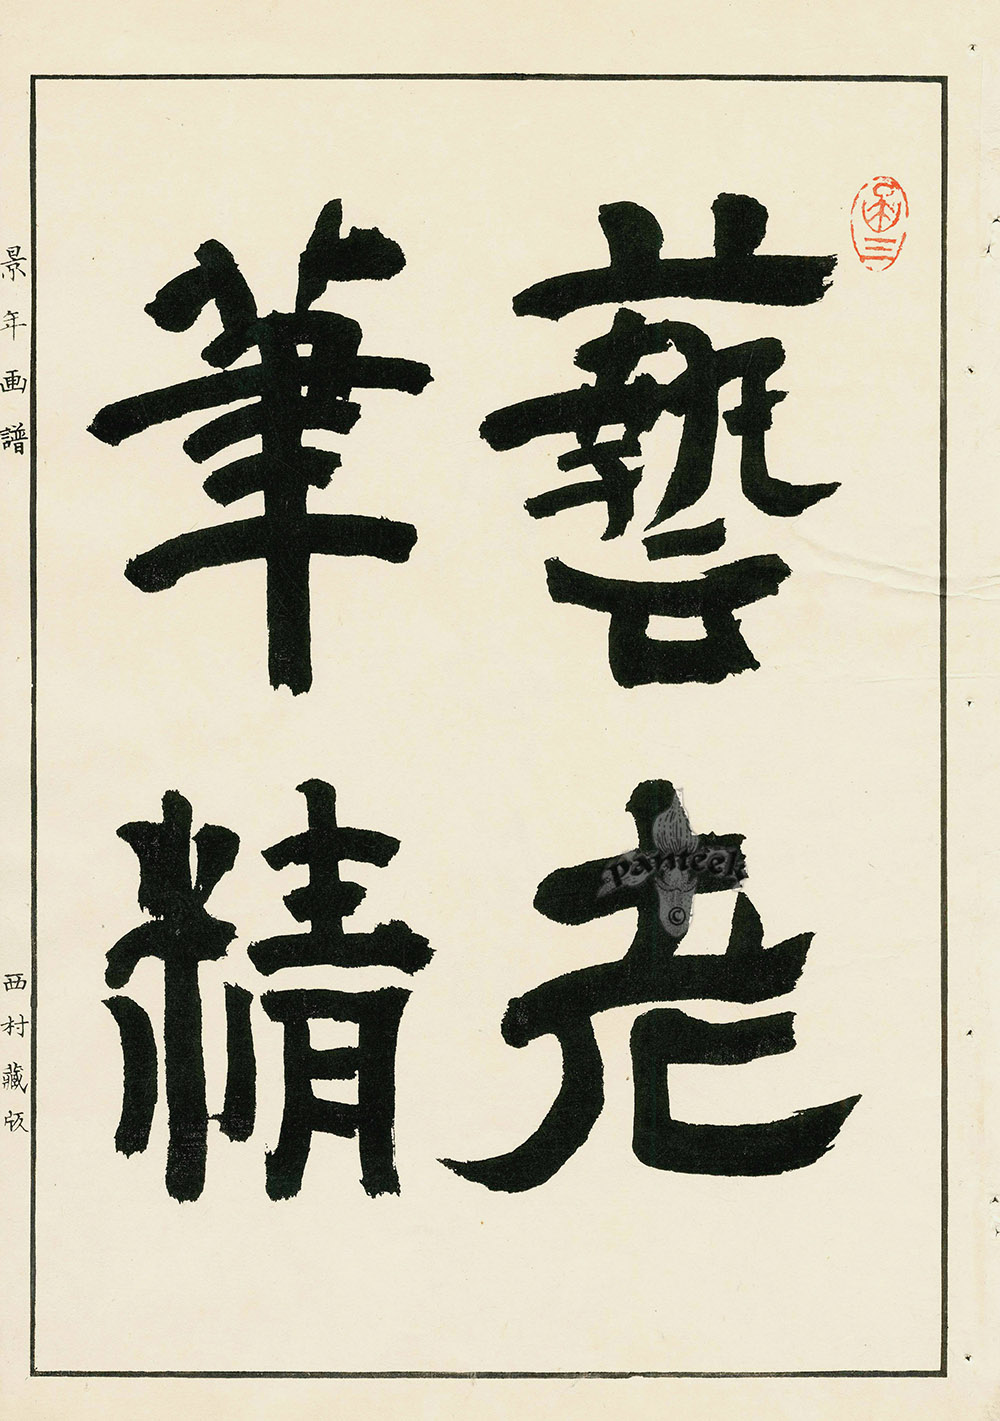 藝老
筆精
景年画譜
西村藏版
Panteek
©